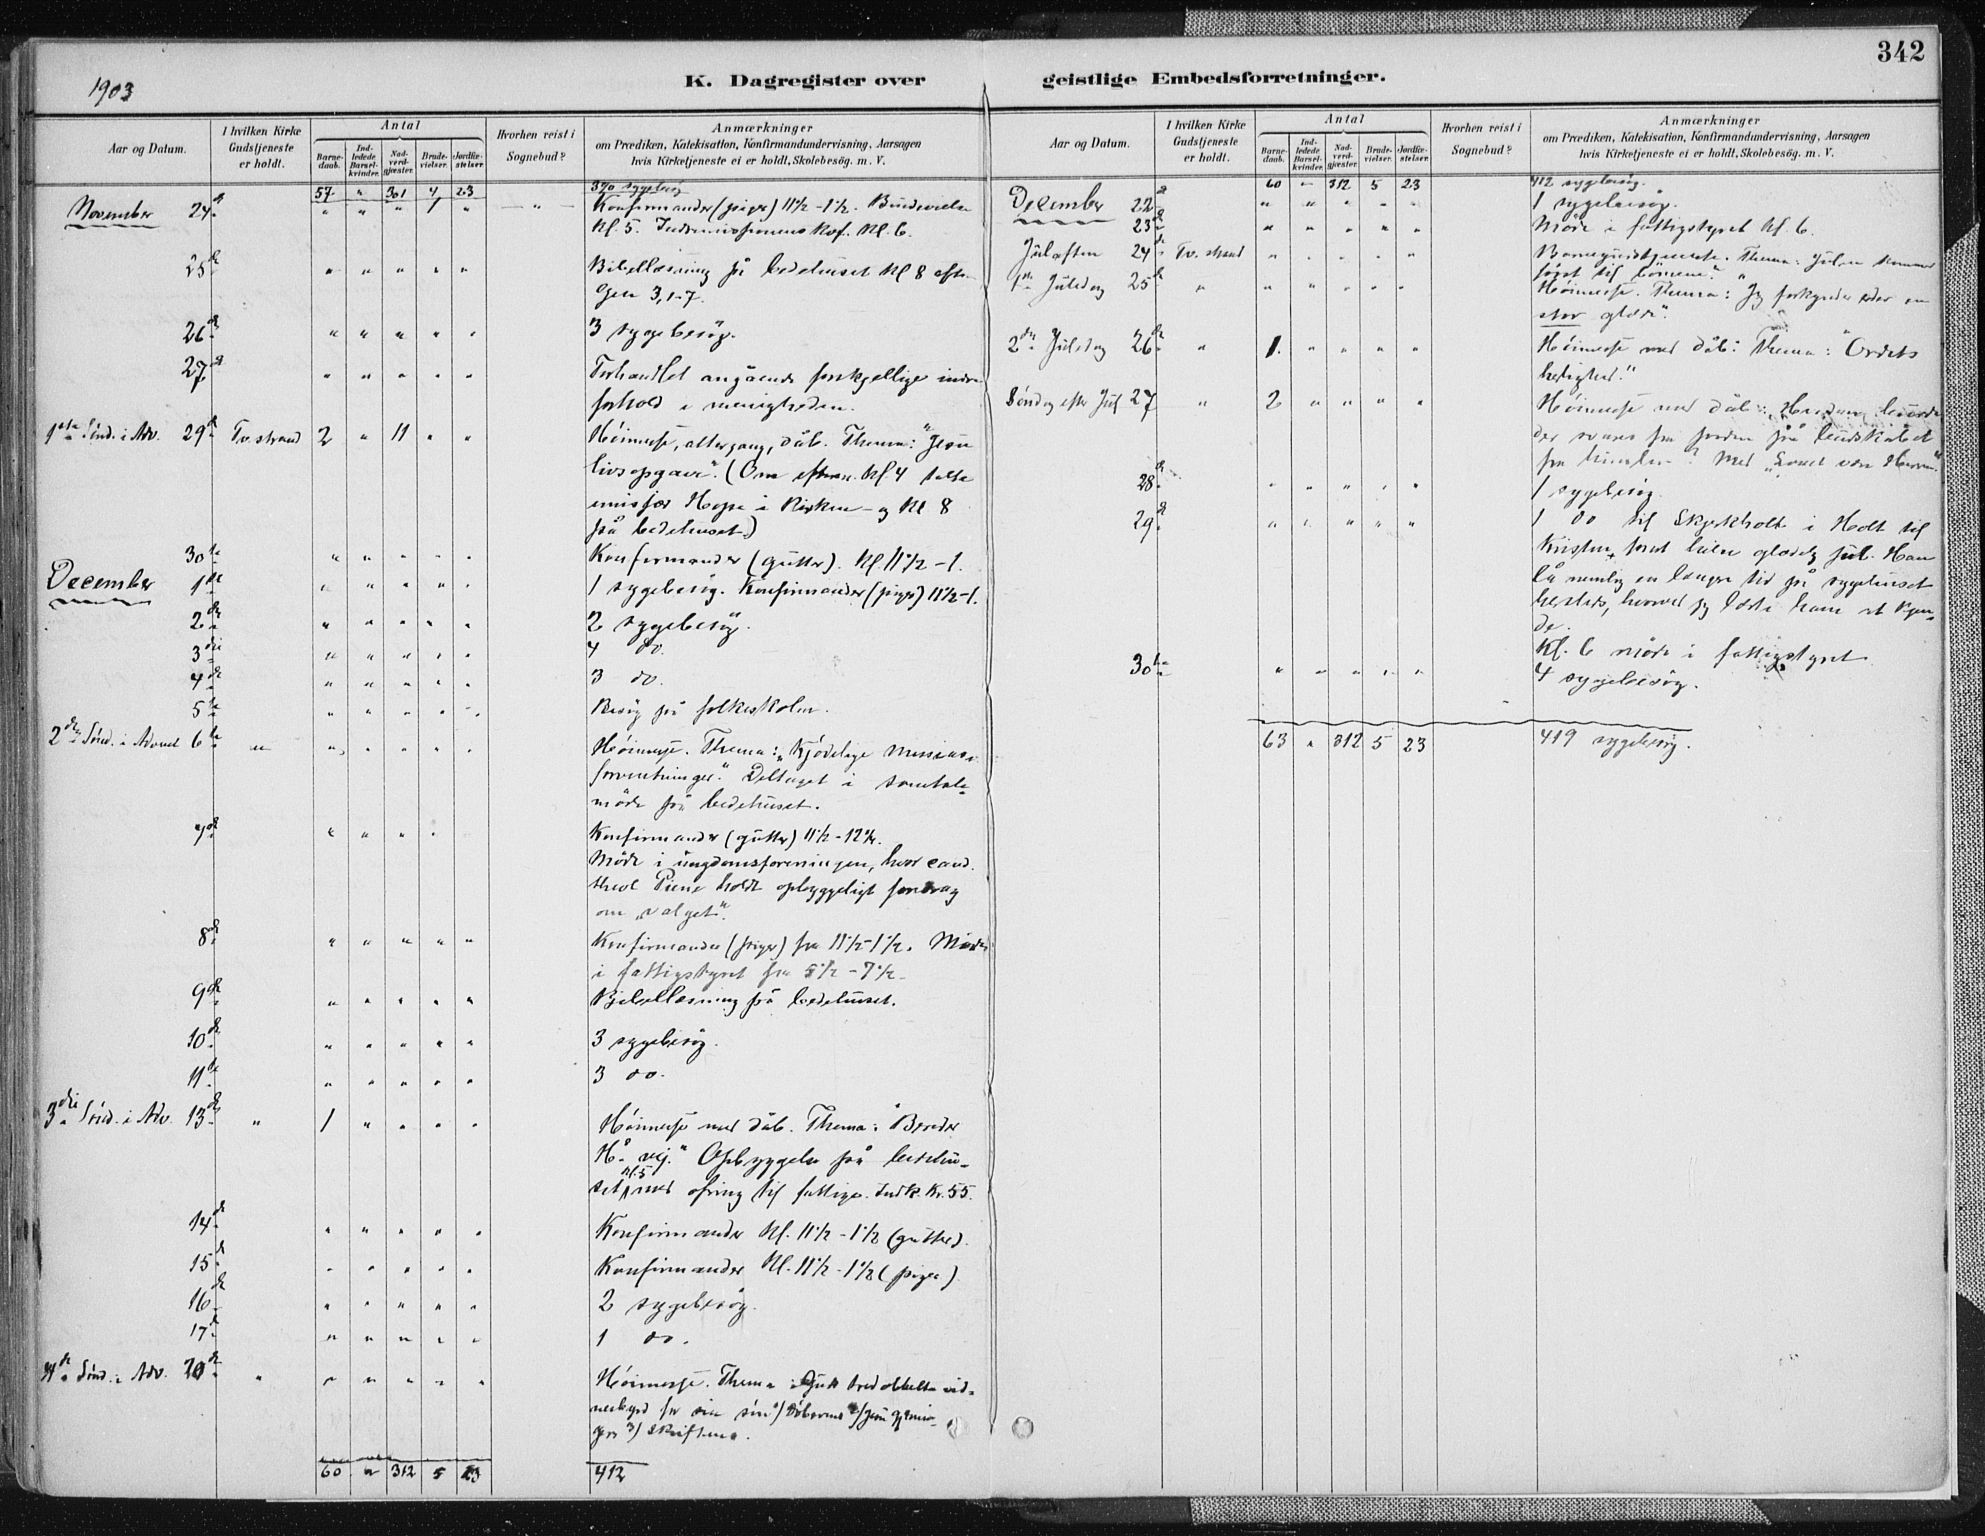 342
1903
K. Dagregister over geistlige Embedsforretninger.
Aar og Datum.
I hvilken Kirke Gudstjeneste er holdt.
Antal
Barne-daab.
Ind-ledede Barsel-kvinder.
Nad-verd-gjæster.
Brude-vielser.
Jordfæ-stelser.
Hvorhen reist i Sognebud?
Anmærkninger
om Prædiken, Katekisation, Konfirmandundervisning, Aarsagen
hvis Kirketjeneste ei er holdt, Skolebesög. m. V.
57 " 301 4 23 sygebesög
November 24de " " " 1 " Konfirmander (piger) 11½-1½. Brudevielse
Kl. 5. Kl. 6.
25de " " " " " Bibellæsning på bedehuset Kl 8 efter
Gen 3,1-7.
26de " " " " " 3 sygebesög.
27de " " " " " Forhandlet angående forskjellige indre
forhold i menigheden.
1ste Sönd. i Adv. 29de Tv.strand 2 " 11 " " Höimesse, altergang, dåb. Thema: "Jesu
livsopgave". (Om efterm. Kl 4 talte
Hope i Kirken - og Kl 8
på bedehuset)
30te " " " " " Konfirmander (gutter). Kl 11½-1.
December 1ste " " " " " 1 sygebesög. Konfirmander (piger) 11½-1.
2den " " " " " 2 sygebesög.
3die " " " " " 4 do.
4de " " " " " 3 do.
5te " " " " " Besög på folkeskolen.
2den Sönd. i Advent 6te " " " " " " Höimesse. Thema: "Kjödelige Messias-
forventninger." Deltaget i samtale-
möde på bedehuset.
7de " " " " Konfirmander (gutter) 11½-12¼.
Möde i ungdomsforeningen, hvor cand.
theol Piene holdt opbyggeligt foredrag
om "valget".
8de " " " " " Konfirmander (piger) fra 11½-1½. Möde
i fattigstyret fra 5½-7½.
9de " " " " " Bibellæsning på bedehuset.
10de " " " " " 3 sygebesög.
11te " " " " " 3 do.
3die Sönd. i Adv. 13de " 1 " " " " Höimesse med dåb. Thema: "Bereder
H. vej." Opbyggelse på bedehu-
set Kl.5 med ofring til fattige. Indk. Kr. 55.
14de " " " " " Konfirmander Kl. 11½-1½ (gutter).
15de " " " " " Konfirmander Kl. 11½-1½ (piger)
16de " " " " " 2 sygebesög.
17de " " " " " 1 do.
4de Sönd. i Adv. 20de " " " " " " Höimesse. Thema: Guds tredobbelte vid-
nesbyrd for sin sön 1/ döberens 2/ Jesu gjernin-
ger 3/ Skriftens.
60 " 312 5 23 412
Aar og Datum.
I hvilken Kirke Gudstjeneste er holdt.
Antal
Barne-daab.
Ind-ledede Barsel-kvinder.
Nad-verd-gjæster.
Brude-vielser.
Jordfæ-stelser.
Hvorhen reist i Sognebud?
Anmærkninger
om Prædiken, Katekisation, Konfirmandundervisning, Aarsagen
hvis Kirketjeneste ei er holdt, Skolebesög. m. V.
60 " 312 5 23 412 sygebesög.
December 22de " " " " " 1 sygebesög.
23de " " " " " Möde i fattigstyret Kl 6.
Juleaften 24de Tv.strand " " " " " Barnegudstjeneste. Thema: Julen kommer
först til börnene".
1ste Juledag 25de " " " " " " Höimesse. Thema: "Jeg forkynder eder en
stor glæde".
2den Juledag 26de " 1. " " " " Höimesse med dåb. Thema: "Ordets
herlighed."
Söndag efter Jul 27 " 2 " " " " Höimesse med dåb:
der svares fra jorden på budskabet
fra himlen? Med "Lovet være Herren".
28de " " " " " 1 sygebesög.
29de " " " " " 1 do til Skjerkholt i Holt til
Kristen, for at hilse glædelig jul. Han
lå nemlig en længre tid på sygehuset
hersteds, hvorved jeg lærte ham at kjen-
de.
Kl. 6 möde i fattigstyret
30te " " " " " 4 sygebesög.
63 " 312 5 23 419 sygebesög.